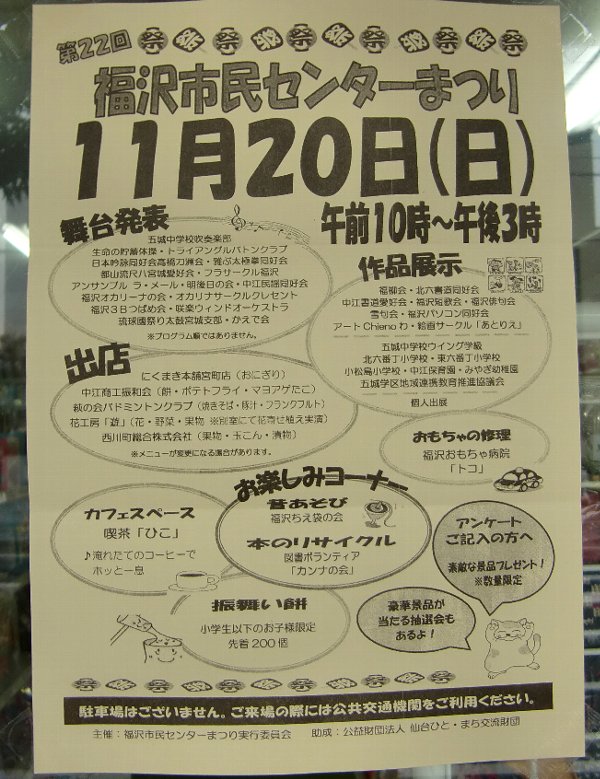 第22回
福沢市民センターまつり
11月20日(日)
午前10時～午後3時
舞台発表
五城中学校吹奏楽部
生命の貯蓄体操・トライアングルバトンクラブ
日本吟詠同好会高橋刀洲会・雅ぶ太極拳同好会
都山流尺八宮城愛好会・フラサークル福沢
アンサンブル ラ・メール・明後日の会・中江民謡同好会
福沢オカリーナの会・オカリナサークルクレセント
福沢3Bつばめ会・咲楽ウィンドオーケストラ
琉球國祭り太鼓宮城支部・かえで会
※プログラム順ではありません。
作品展示
福柳会・北六書道同好会
中江書道愛好会・福沢短歌会・福沢俳句会
雪句会・福沢パソコン同好会
アートChienoわ・絵画サークル「あとりえ」
五城中学校ウイング学級
北六番丁小学校・東六番丁小学校
小松島小学校・中江保育園・みやぎ幼稚園
五城学区地域連携教育推進協議会
個人出展
出店
にくまき本舗宮町店(おにぎり)
中江商工振和会(餅・ポテトフライ・マヨアゲたこ)
萩の会バドミントンクラブ(焼きそば・豚汁・フランクフルト)
花工房「遊」(花・野菜・果物 ※別室にて花寄せ植え実演)
西川町総合株式会社(果物・玉こん・漬物)
※メニューが変更になる場合があります。
おもちゃの修理
福沢おもちゃ病院
「トコ」
お楽しみコーナー
昔あそび
福沢ちえ袋の会
本のリサイクル
図書ボランティア
「カンナの会」
カフェスペース
喫茶「ひこ」
♪淹れたてのコーヒーで
ホッと一息
アンケート
ご記入の方へ
素敵な景品プレゼント!
※数量限定
振舞い餅
小学生以下のお子様限定
先着200個
豪華景品が
当たる抽選会も
あるよ!
駐車場はございません。ご来場の際には公共交通機関をご利用ください。
主催:福沢市民センターまつり実行委員会 助成:公益財団法人 仙台ひと・まち交流財団